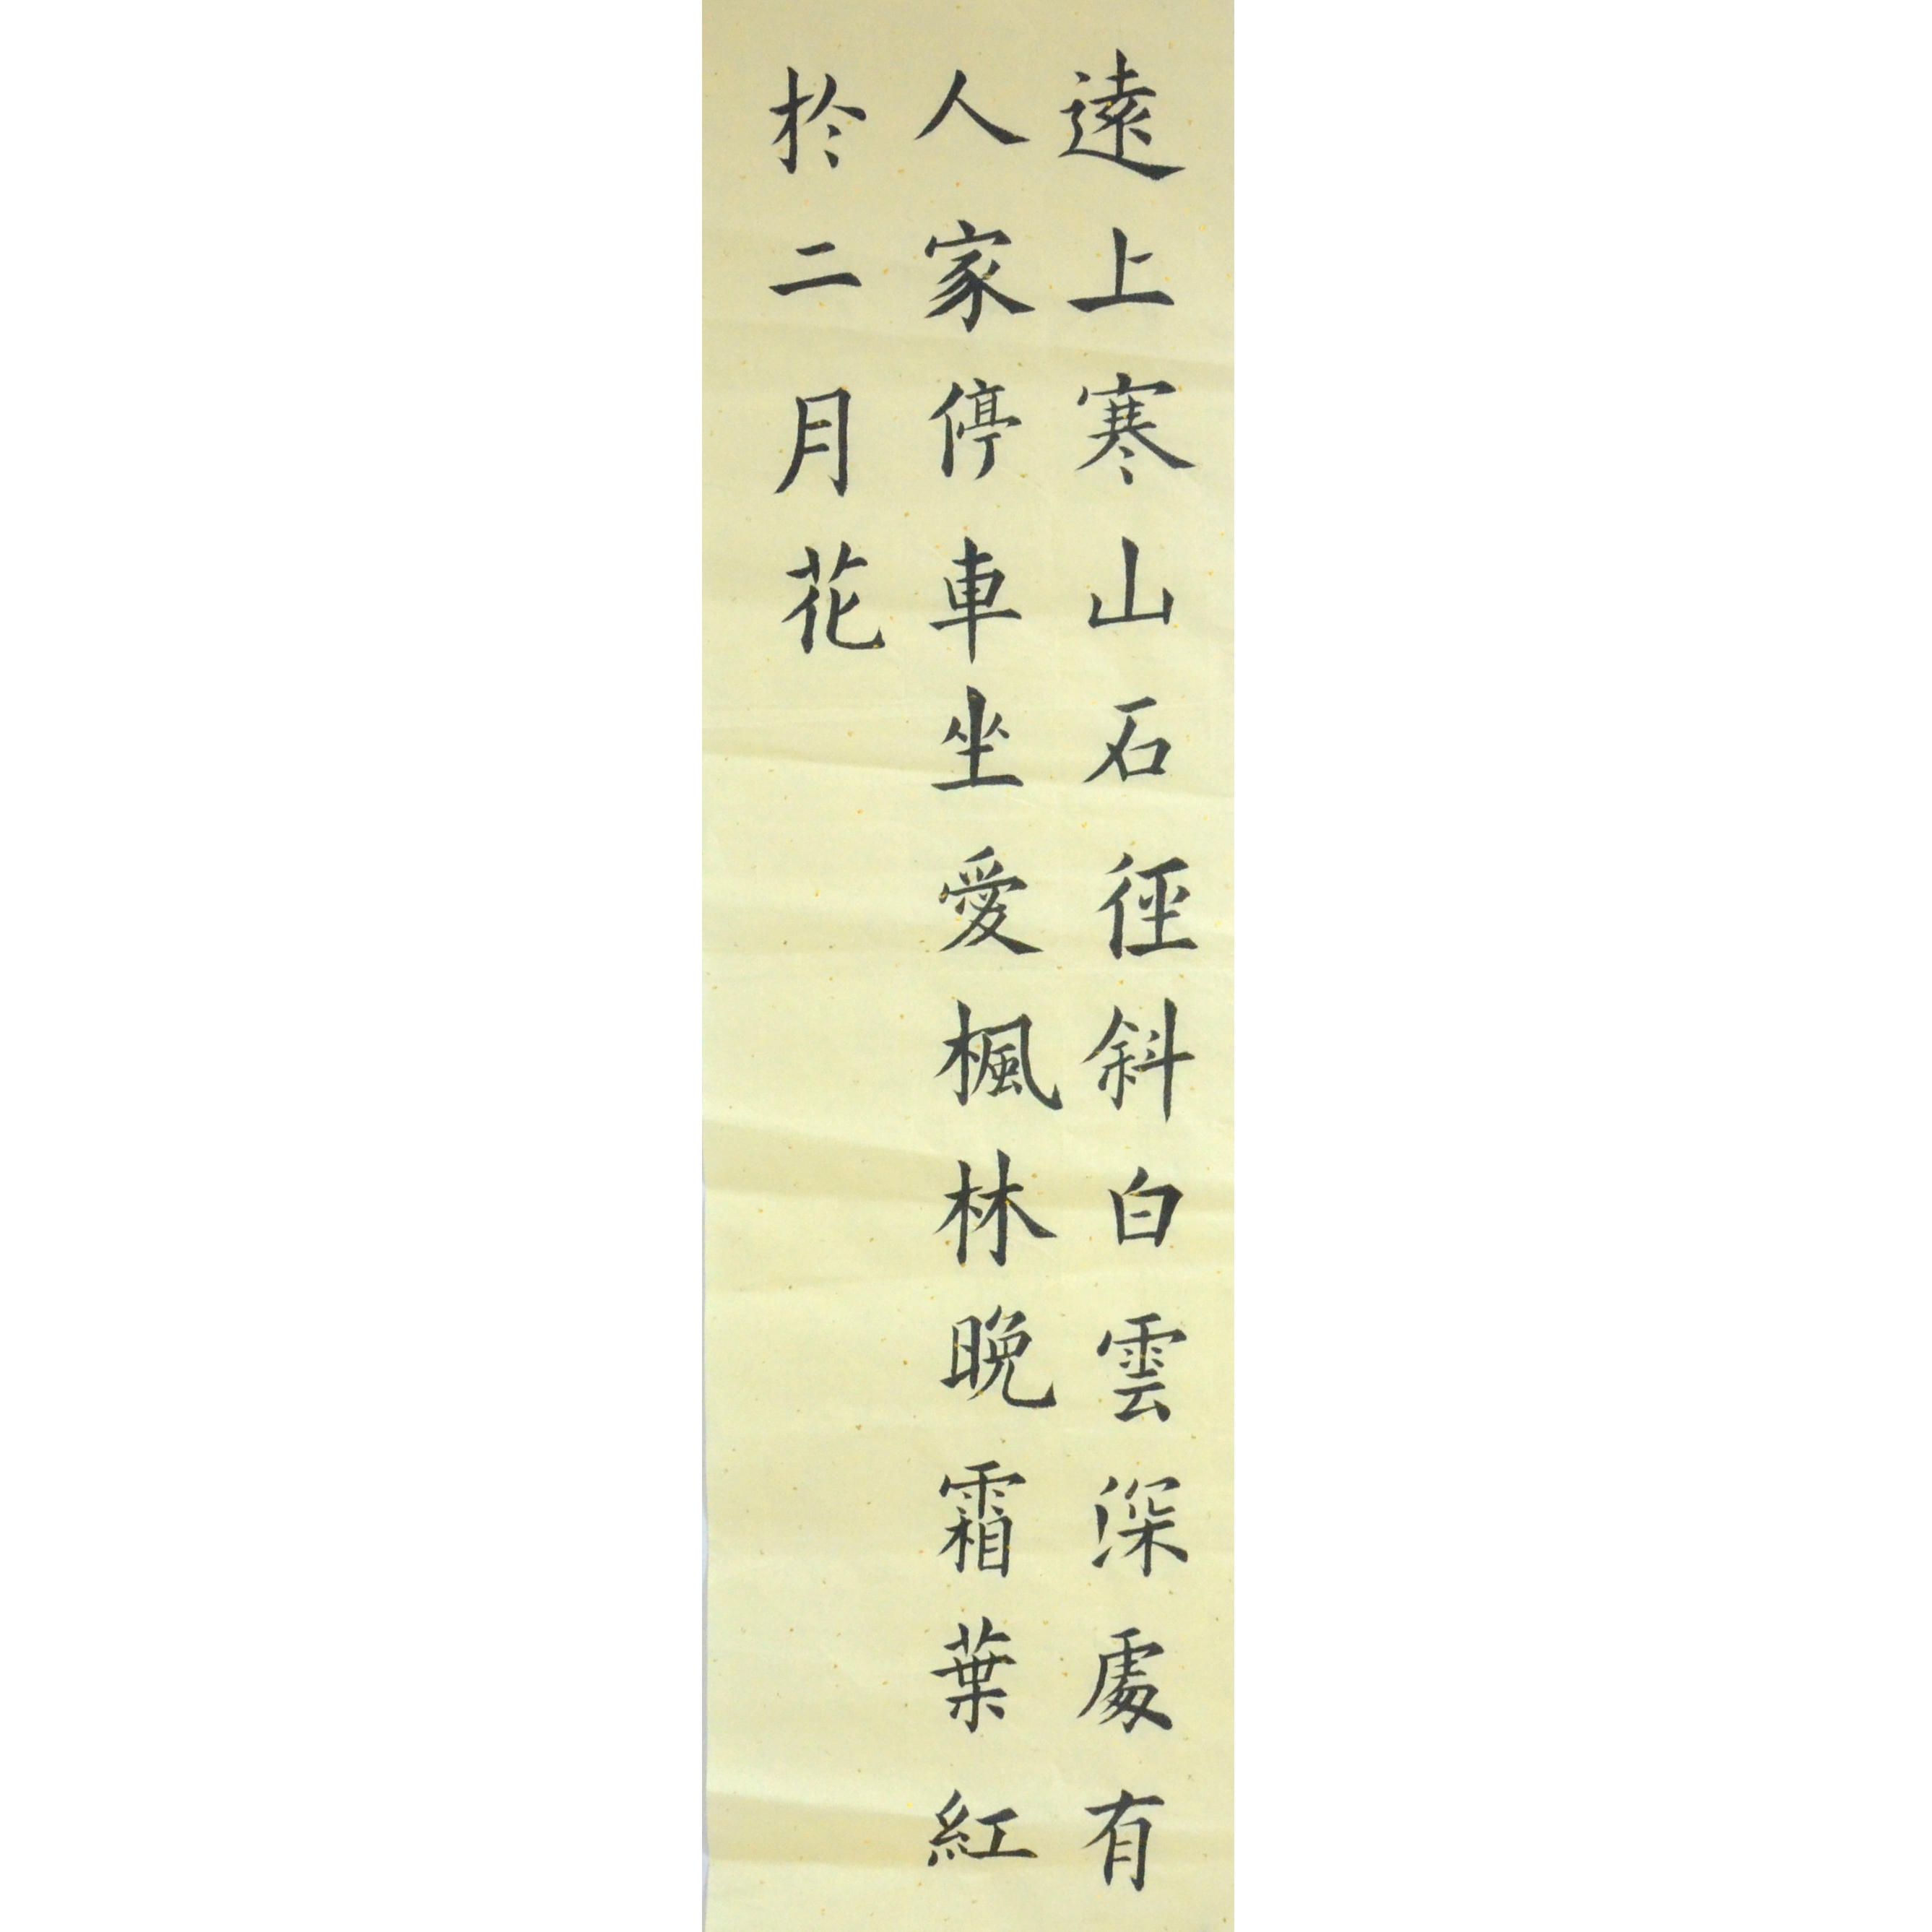 遠上寒山石徑斜白雲深處有
人家停車坐愛楓林晚霜葉紅
於二月花